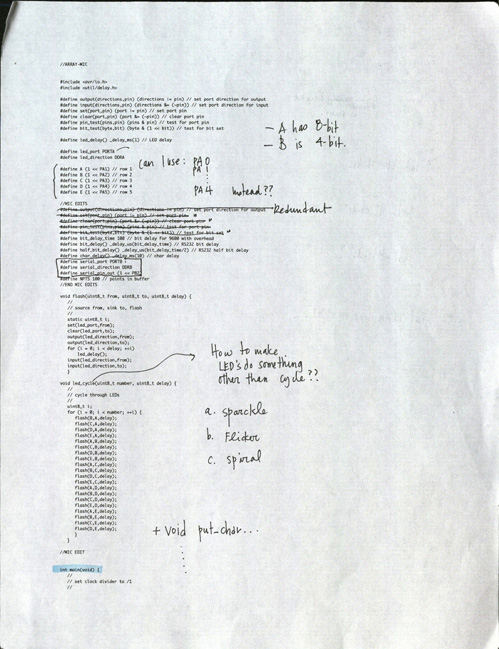 //ARRAY-MIC
#include <avr/io.h>
#include <util/delay.h>
#define output(directions,pin) (directions |= pin) // set port direction for output
#define input(directions,pin) (directions &= (~pin)) // set port direction for input
#define set(port,pin) (port |= pin) // set port pin
#define clear(port,pin) (port &= (~pin)) // clear port pin
#define pin_test(pins,pin) (pins & pin) // test for port pin
#define bit_test(byte,bit) (byte & (1 << bit)) // test for bit set
- A has 8-bit
- B is 4-bit.
#define led_delay() _delay_ms(1) // LED delay
#define led_port PORTA
#define led_direction DDRA
can I use: PA0
PA1
PA4 instead??
#define A (1 << PA1) // row 1
#define B (1 << PA2) // row 2
#define C (1 << PA3) // row 3
#define D (1 << PA4) // row 4
#define E (1 << PA5) // row 5
//MIC EDITS
#define output(directions,pin) (directions |= pin) // set port direction for output
Redundant
#define set(port,pin) (port |= pin) // set port pin
#define clear(port,pin) (port &= (~pin)) // clear port pin
#define pin_test(pins,pin) (pins & pin) // test for port pin
#define bit_test(byte,bit) (byte & (1 << bit)) // test for bit set
#define bit_delay_time 100 // bit delay for 9600 with overhead
#define bit_delay() _delay_us(bit_delay_time) // RS232 bit delay
#define half_bit_delay() _delay_us(bit_delay_time/2) // RS232 half bit delay
#define char_delay() _delay_ms(10) // char delay
#define serial_port PORTB
#define serial_direction DDRB
#define serial_pin_out (1 << PB2)
#define NPTS 100 // points in buffer
//END MIC EDITS
void flash(uint8_t from, uint8_t to, uint8_t delay) {
//
// source from, sink to, flash
//
static uint8_t i;
set(led_port,from);
clear(led_port,to);
output(led_direction,from);
output(led_direction,to);
for (i = 0; i < delay; ++i)
led_delay();
input(led_direction,from);
input(led_direction,to);
}
How to make
LED's do something
other than cycle??
void led_cycle(uint8_t number, uint8_t delay) {
//
// cycle through LEDs
//
uint8_t i;
for (i = 0; i < number; ++i) {
flash(B,A,delay);
flash(C,A,delay);
flash(D,A,delay);
flash(E,A,delay);
flash(A,B,delay);
flash(C,B,delay);
flash(D,B,delay);
flash(E,B,delay);
flash(A,C,delay);
flash(B,C,delay);
flash(D,C,delay);
flash(E,C,delay);
flash(A,D,delay);
flash(B,D,delay);
flash(C,D,delay);
flash(E,D,delay);
flash(A,E,delay);
flash(B,E,delay);
flash(C,E,delay);
flash(D,E,delay);
}
}
a. sparckle
b. Flicker
c. spiral
+ void put_char...
//MIC EDIT
int main(void) {
//
// set clock divider to /1
//